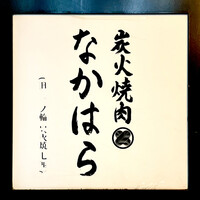 炭火焼肉
なかはら